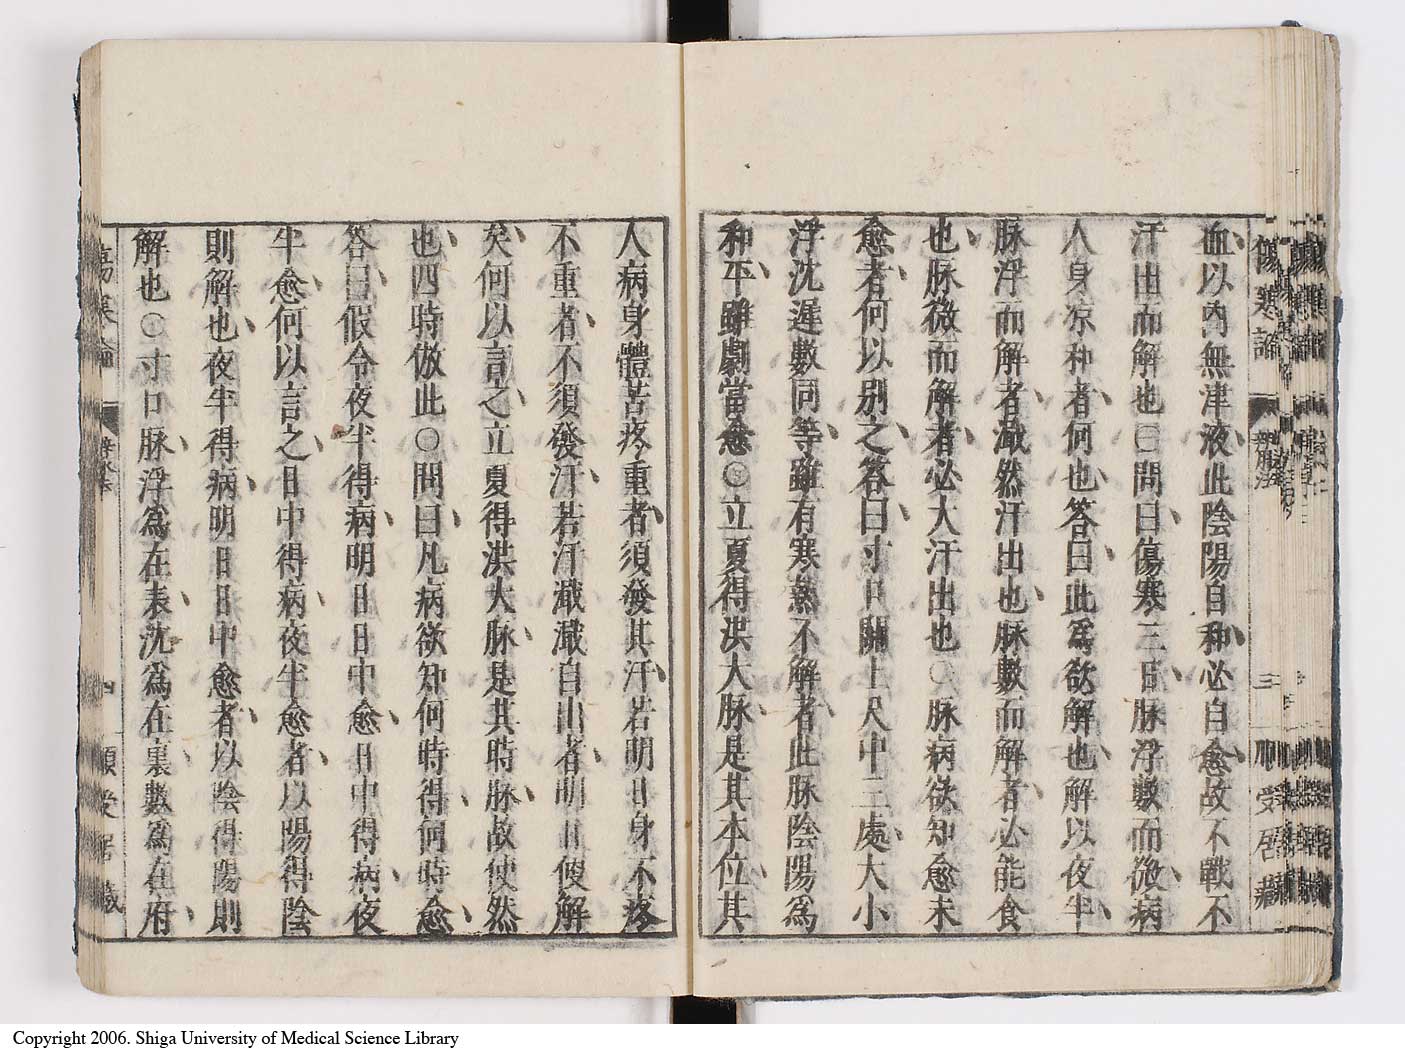 血以內無津液此陰陽自和必自愈故不戰不
汗出而解也〇問曰傷寒三日脉浮數而微病
人身凉和者何也答曰此爲欲解也解以夜半
脉浮而解者濈然汗出也脉數而解者必能食
也脉微而解者必大汗出也〇脉病欲知愈未
愈者何以別之答曰寸口關上尺中三處大小
浮沈遲數同等雖有寒熱不解者此脉陰陽爲
和平雖劇當愈〇立夏得洪大脉是其本位其
人病身體苦疼重者須發其汗若明日身不疼
不重者不須發汗若汗濈濈自出者明日便解
矣何以言之立夏得洪大脉是其時脉故使然
也四時倣此〇問曰凡病欲知何時得何時愈
答曰假令夜半得病明日日中愈日中得病夜
半愈何以言之日中得病夜半愈者以陽得陰
則解也夜半得病明日日中愈者以陰得陽則
解也〇寸口脉浮爲在表沈爲在裏數爲在府
傷寒論
三
傷寒論
四
Copyright 2006. Shiga University of Medical Science Library